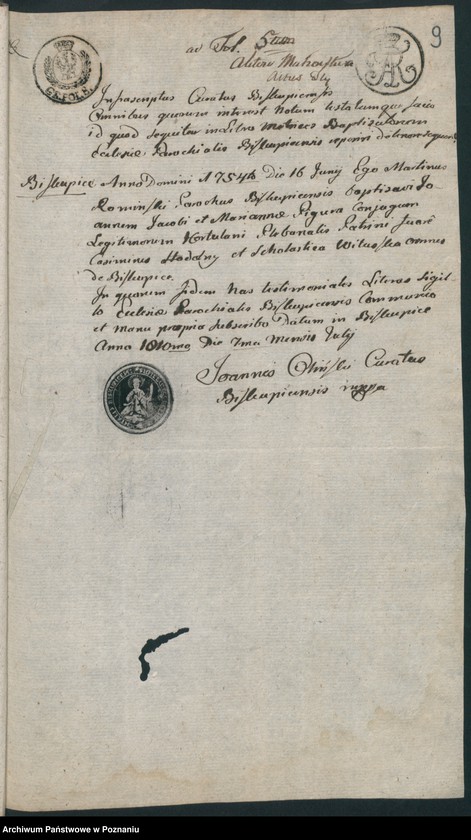 9
ad Fol.
G&FOLR.
FAR
Infrascriptus Curatus Biskupicensis
Omnibus quorum interest Notum testatumque facio
id quod sequitur in Libro Metrices Baptisatorum
Ecclesiæ Parochialis Biskupicensis reperiri
Biskupice Anno Domini 1754to Die 16 Junij Ego Martinus
Rominski Parochus Biskupicensis baptisavi Jo-
annem Jacobi et Mariannæ Figura Conjugum
Legitimorum Hortulani Plebanalis Patrini fuere
Casimirus Stodolny et Scholastica omnes
de Biskupice
In quorum fidem has testimoniales Literas Sigil-
lo Ecclesiæ Parochialis Biskupicensis Communio
et manu propria subscribo Datum in Biskupice
Anno 1810mo Die 7ma Mensis Julij
Joannes Curatus
Biskupicensis mppa
© Archiwum Państwowe w Poznaniu